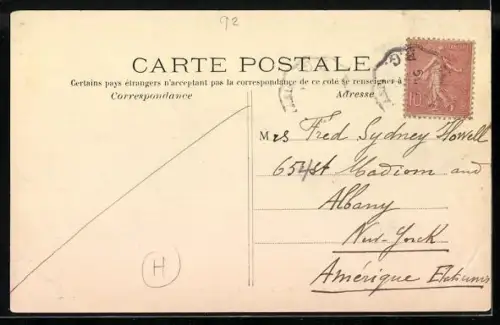 92
CARTE POSTALE
Certains pays étrangers n'acceptent pas la correspondance de ce côté se renseigner à
Correspondance
Adresse
10
Mrs Fred Sydney Howell
Madison and
Albany
New-Yorck
Amérique
H